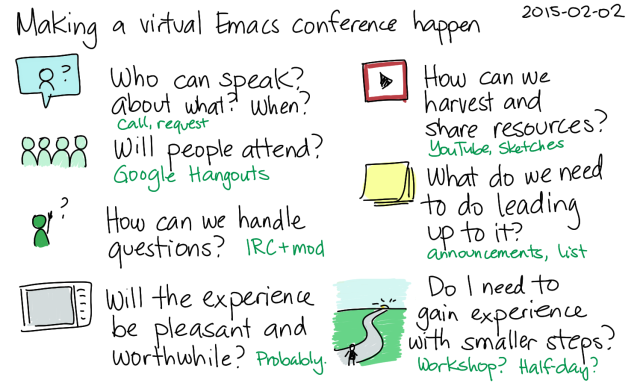 Making a virtual Emacs conference happen
2015-02-02
?
Who can speak?
about what? When?
call, request
Will people attend?
Google Hangouts
?
How can we handle
questions? IRC + mod
Will the experience
be pleasant and
worthwhile? Probably.
How can we
harvest and
share resources?
YouTube, sketches
What do we need
to do leading
up to it?
announcements, list
Do I need to
gain experience
with smaller steps?
Workshop? Half-day?